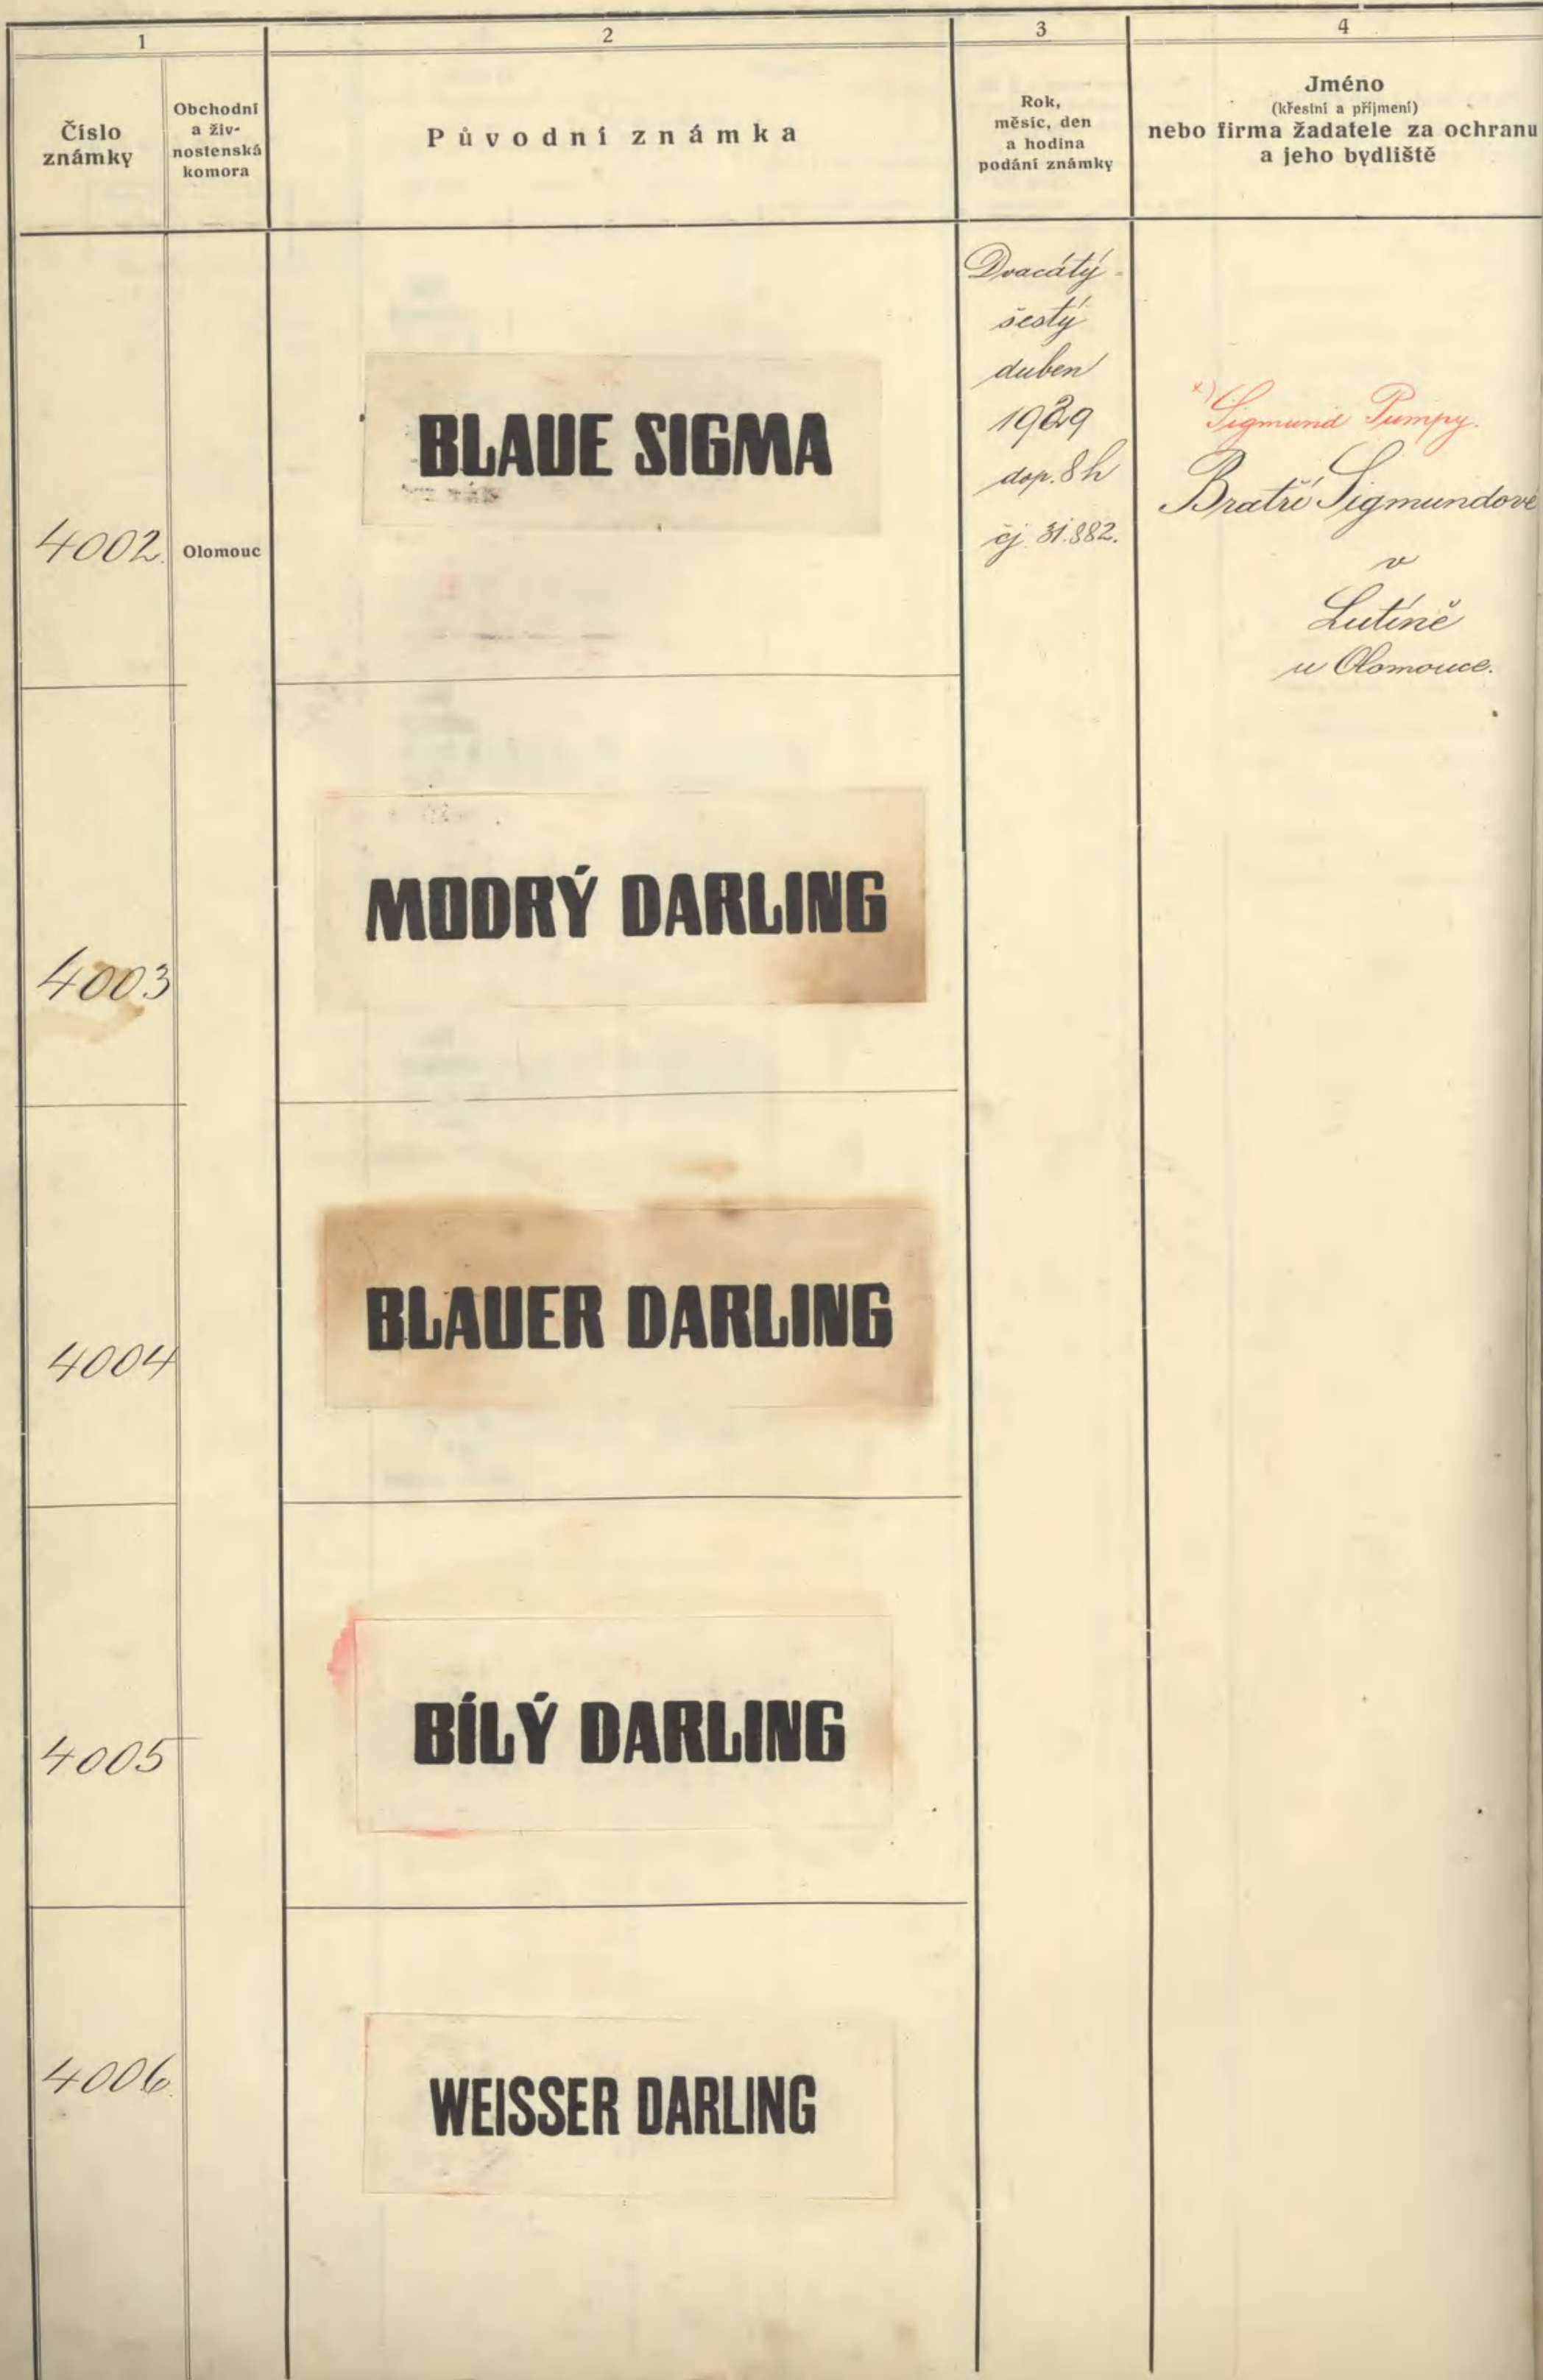 1
2
3
4
Číslo
známky
Obchodní
a živ-
nostenská
komora
Původní známka
Rok,
měsíc, den
a hodina
podání známky
Jméno
(křestní a příjmení)
nebo firma žadatele za ochranu
a jeho bydliště
4002.
Olomouc
BLAUE SIGMA
Dvacátý-
šestý
duben
1929
dop. 8 h
čj. 31.882.
x) Sigmund Pumpy.
Bratří Sigmundové
v
Lutíně
u Olomouce.
4003
MODRÝ DARLING
4004
BLAUER DARLING
4005
BÍLÝ DARLING
4006.
WEISSER DARLING